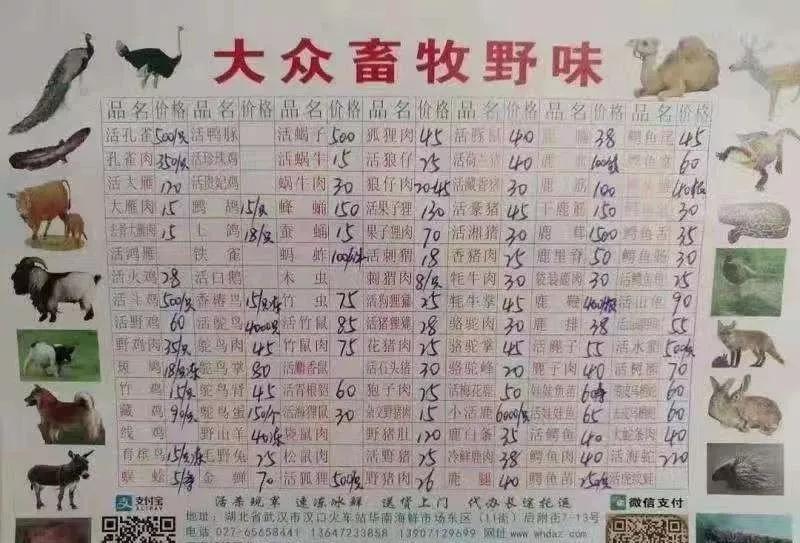 大众畜牧野味
品名 价格 品名 价格 品名 价格 品名 价格 品名 价格 品名 价格 品名 价格
活孔雀 500/只 活鸭脎 活蝎子 500 狐狸肉 45 活豚鼠 40 38 鳄鱼尾 45
孔雀肉 350/只 活珍珠鸡 活蜗牛 15 活狼仔 25 活荷兰猪 40 60
活大雁 120 活贵妃鸡 蜗牛肉 30 狼仔肉 20-45 活藏香猪 30 鹿筋 100
大雁肉 15 鹧鸪 15/只 蜂蛹 150 活果子狸 130 活豪猪 45 干鹿筋 150 30
15 土鸽 18/只 蚕蛹 15 果子狸肉 70 活湘猪 30 鹿茸 1500 鳄鱼舌 35
活鸿雁 铁雀 蚂蚱 活刺猬 18 香猪肉 25 鹿里脊 50 鳄鱼肠 30
活火鸡 28 活白鹅 木虫 刺猬肉 8/只 牦牛肉 30 袋装鹿肉 30 25
活斗鸡 500/只 香椿鸟 竹虫 75 活狗狸獾 25 牦牛掌 45 鹿鞭 活山龟 90
活野鸡 60 活鸵鸟 4000只 活竹鼠 85 活猪狸獾 28 骆驼肉 30 鹿排 38 55
野鸡肉 35/只 鸵鸟肉 45 竹鼠肉 75 花猪肉 25 骆驼掌 45 活麂子 55 500/只
鸵鸟掌 80 活麝香鼠 活石头猪 30 骆驼峰 20 麂子肉 40 活树熊 70
竹鸡 15/只 鸵鸟胃 45 活青根貂 60 狍子肉 25 活梅花鹿 50 60
藏鸡 鸵鸟蛋 150/个 活海狸鼠 30 杂交野猪肉 15 小活鹿 6000/只 活娃娃鱼 65 60
线鸡 野山羊 袋鼠肉 野猪肚 120 鹿白条 35 活鳄鱼 40 大蛇条肉 40
毛野兔 25 松鼠肉 活野猪 25 冷鲜鹿肉 38 鳄鱼肉 40 活海蛇 220
蜈蚣 金蝉 70 活狐狸 500/只 野猪肉 26 鹿腿 40 鳄鱼苗
支付宝 ALIPAY 活杀现宰 速冻冰鲜 送货上门 代办长途托运 微信支付
地址：湖北省武汉市汉口火车站华南海鲜市场东区（11街）后附街7-13号
电话 027-65658441 13647233858 13907129699 网址www.whdaz.com